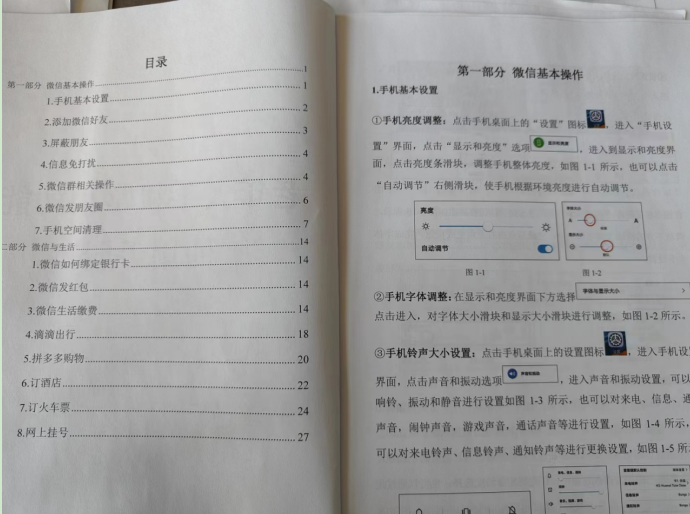 目录
第一部分 微信基本操作 1
1.手机基本设置 1
2.添加微信好友 2
3.屏蔽朋友 3
4.信息免打扰 4
5.微信群相关操作 4
6.微信发朋友圈 6
7.手机空间清理 7
二部分 微信与生活 14
1.微信如何绑定银行卡 14
2.微信发红包 14
3.微信生活缴费 14
4.滴滴出行 18
5.拼多多购物 20
6.订酒店 22
7.订火车票 24
8.网上挂号 27
第一部分 微信基本操作
1.手机基本设置
①手机亮度调整：点击手机桌面上的“设置”图标，进入“手机设
置”界面，点击“显示和亮度”选项 显示和亮度，进入到显示和亮度界
面，点击亮度条滑块，调整手机整体亮度，如图 1-1 所示，也可以点击
“自动调节”右侧滑块，使手机根据环境亮度进行自动调节。
亮度
自动调节
A A
图 1-1 图 1-2
②手机字体调整：在显示和亮度界面下方选择 字体与显示大小
点击进入，对字体大小滑块和显示大小滑块进行调整，如图 1-2 所示。
③手机铃声大小设置：点击手机桌面上的设置图标，进入手机设
界面，点击声音和振动选项 声音和振动，进入声音和振动设置，可以
响铃、振动和静音进行设置如图 1-3 所示，也可以对来电、信息、通
声音，闹钟声音，游戏声音，通话声音等进行设置，如图 1-4 所示，
可以对来电铃声、信息铃声、通知铃声等进行更换设置，如图 1-5 所